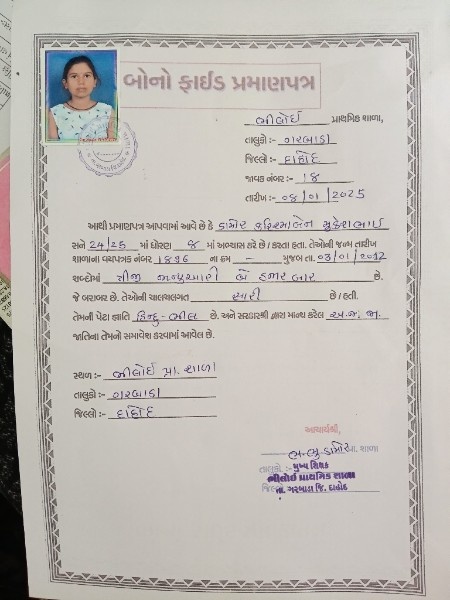 બોનો ફાઈડ પ્રમાણપત્ર
ભીલોઈ પ્રાથમિક શાળા,
તાલુકો :- ગરબાડા
જિલ્લો :- દાહોદ
જાવક નંબર :- 18
તારીખ :- 08/01/2025
આથી પ્રમાણપત્ર આપવામાં આવે છે કે ડામોર મુકેશભાઈ
સને 24/25 માં ધોરણ 8 માં અભ્યાસ કરે છે / કરતા હતા. તેઓની જન્મ તારીખ
શાળાના વયપત્રક નંબર 1896 ના ક્રમ - મુજબ તા. 03/01/2012
શબ્દોમાં ત્રીજી જાન્યુઆરી બે હજાર બાર છે.
જે બરાબર છે. તેઓની ચાલચલગત સારી છે / હતી.
તેમની પેટા જ્ઞાતિ હિન્દુ-ભીલ છે. અને સરકારશ્રી દ્વારા માન્ય કરેલ અ.જ.જા.
જાતિના તેમનો સમાવેશ કરવામાં આવેલ છે.
સ્થળ :- ભીલોઈ પ્રા. શાળા
તાલુકો :- ગરબાડા
જિલ્લો :- દાહોદ
આચાર્યશ્રી,
પ્રા. શાળા
તાલુકો :- મુખ્ય શિક્ષક
ભીલોઈ પ્રાથમિક શાળા
તા. ગરબાડા જિ. દાહોદ